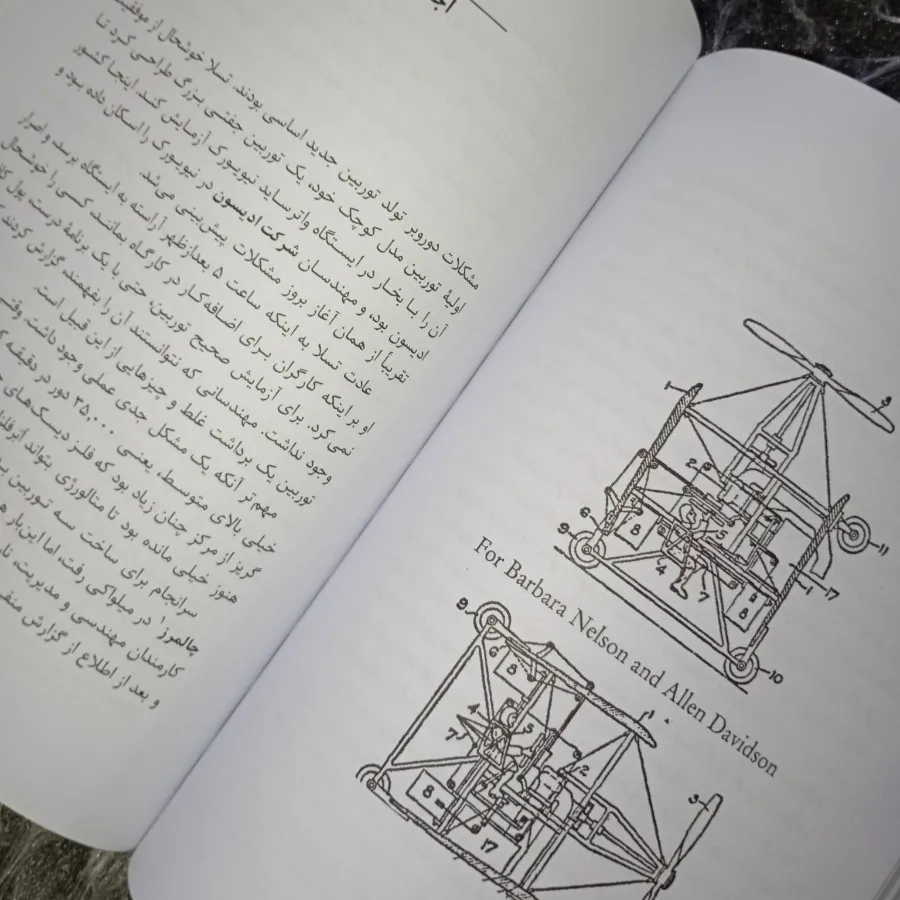 مشکلات دوروبر تولد توربین جدید اساسی بودند. تسلا خوشحال از موفقیت
اولیهٔ توربین مدل کوچک خود، یک توربین جفتی بزرگ طراحی کرد تا
آن را با بخار در ایستگاه واترساید نیویورک آزمایش کند. اینجا کشور
ادیسون بود، و مهندسان شرکت ادیسون در نیویورک را اسکان داده بود و
تقریباً از همان آغاز بروز مشکلات پیش‌بینی می‌شد.
عادت تسلا به اینکه ساعت ۵ بعدازظهر آراسته به ایستگاه برسد، و اصرار
او بر اینکه کارگران برای اضافه‌کار در کارگاه بمانند، کسی را خوشحال
نمی‌کرد. برای آزمایش صحیح توربین، حتی با یک برنامهٔ درست پول
وجود نداشت. مهندسانی که نتوانستند آن را بفهمند، گزارش کردند
توربین یک برداشت غلط و چیزهایی از این قبیل است.
مهم‌تر آنکه یک مشکل جدی عملی وجود داشت
خیلی بالای متوسط، یعنی ۳۵,۰۰۰ دور در دقیقه
گریز از مرکز چنان زیاد بود که فلز دیسک‌های
هنوز خیلی مانده بود تا متالورژی بتواند
سرانجام برای ساخت سه توربین
چالمرز۱ در میلواکی رفت، اما این‌بار
کارمندان مهندسی و مدیریت،
و بعد از اطلاع از گزارش
3
1
2
6
8
5
9
4
7
8
1
17
11
10
For Barbara Nelson and Allen Davidson
9
6
8
1
4
5
7
2
3
8
17